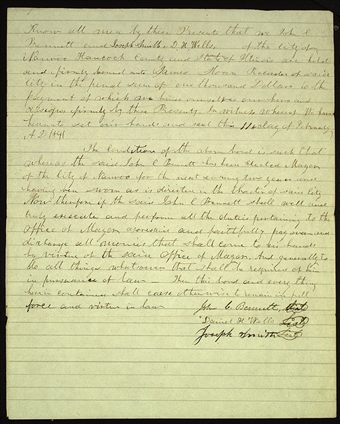 Know all men by these Present that we John C
Bennett and Joseph Smith & D. H. Wells of the city of
Nauvoo Hancock County and State of Illinois are held
and firmly bound unto James Sloan Recorder of said
city in the penal sum of one thousand Dollars to the
payment of which we bind ourselves our heirs and
assigns firmly by these Presents. In witness whereof We have
hereunto set our hands and seal this 11th day of February
A.D. 1841
The Condition of the above bond is such that
whereas the said John C Bennett has been elected Mayor
of the City of Nauvoo for the next ensuing two years and
having been sworn as is directed in the Charter of said City
Now therefore if the said John C Bennett shall well and
truly execute and perform all the duties pertaining to the
Office of Mayor and faithfully pay over and
discharge all monies that shall come to his hands
by virtue of the said Office of Mayor. And generally to
do all things whatsoever that shall be required of him
in pursuance of law — Then this bond and every thing
herein contained shall cease otherwise to remain in full
force and virtue in law
John C. Bennett, Seal
Daniel H Wells Seal
Joseph Smith Seal